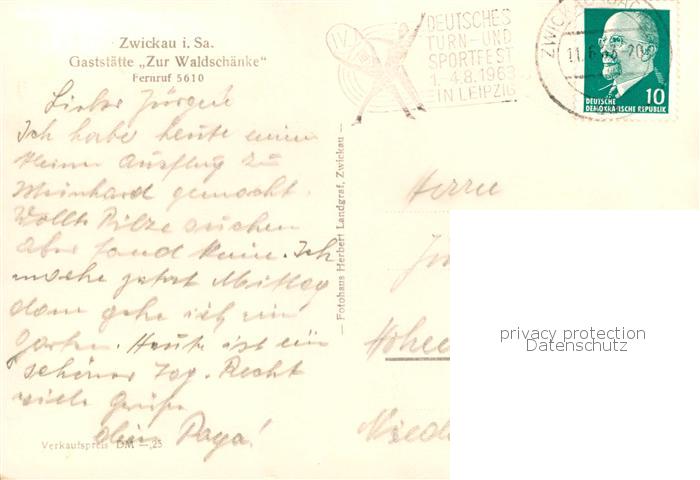 Zwickau i. Sa.
Gaststätte „Zur Waldschänke“
Fernruf 5610
Lieber Jürgen!
Ich habe heute einen
kleinen Ausflug zu
gemacht.
Wollte Pilze suchen
aber fand keine. Ich
mache jetzt Mittag
dann gehe ich in
Garten. Heute ist ein
schöner Tag. Recht
viele Grüße
dein Papa!
Verkaufspreis DM —,25
— Fotohaus Herbert Landgraf, Zwickau —
IV.
DEUTSCHES
TURN- UND
SPORTFEST
1.-4.8.1963
IN LEIPZIG
ZWICKAU
11.6.63
DEUTSCHE
DEMOKRATISCHE REPUBLIK
10
Herrn
privacy protection
Datenschutz